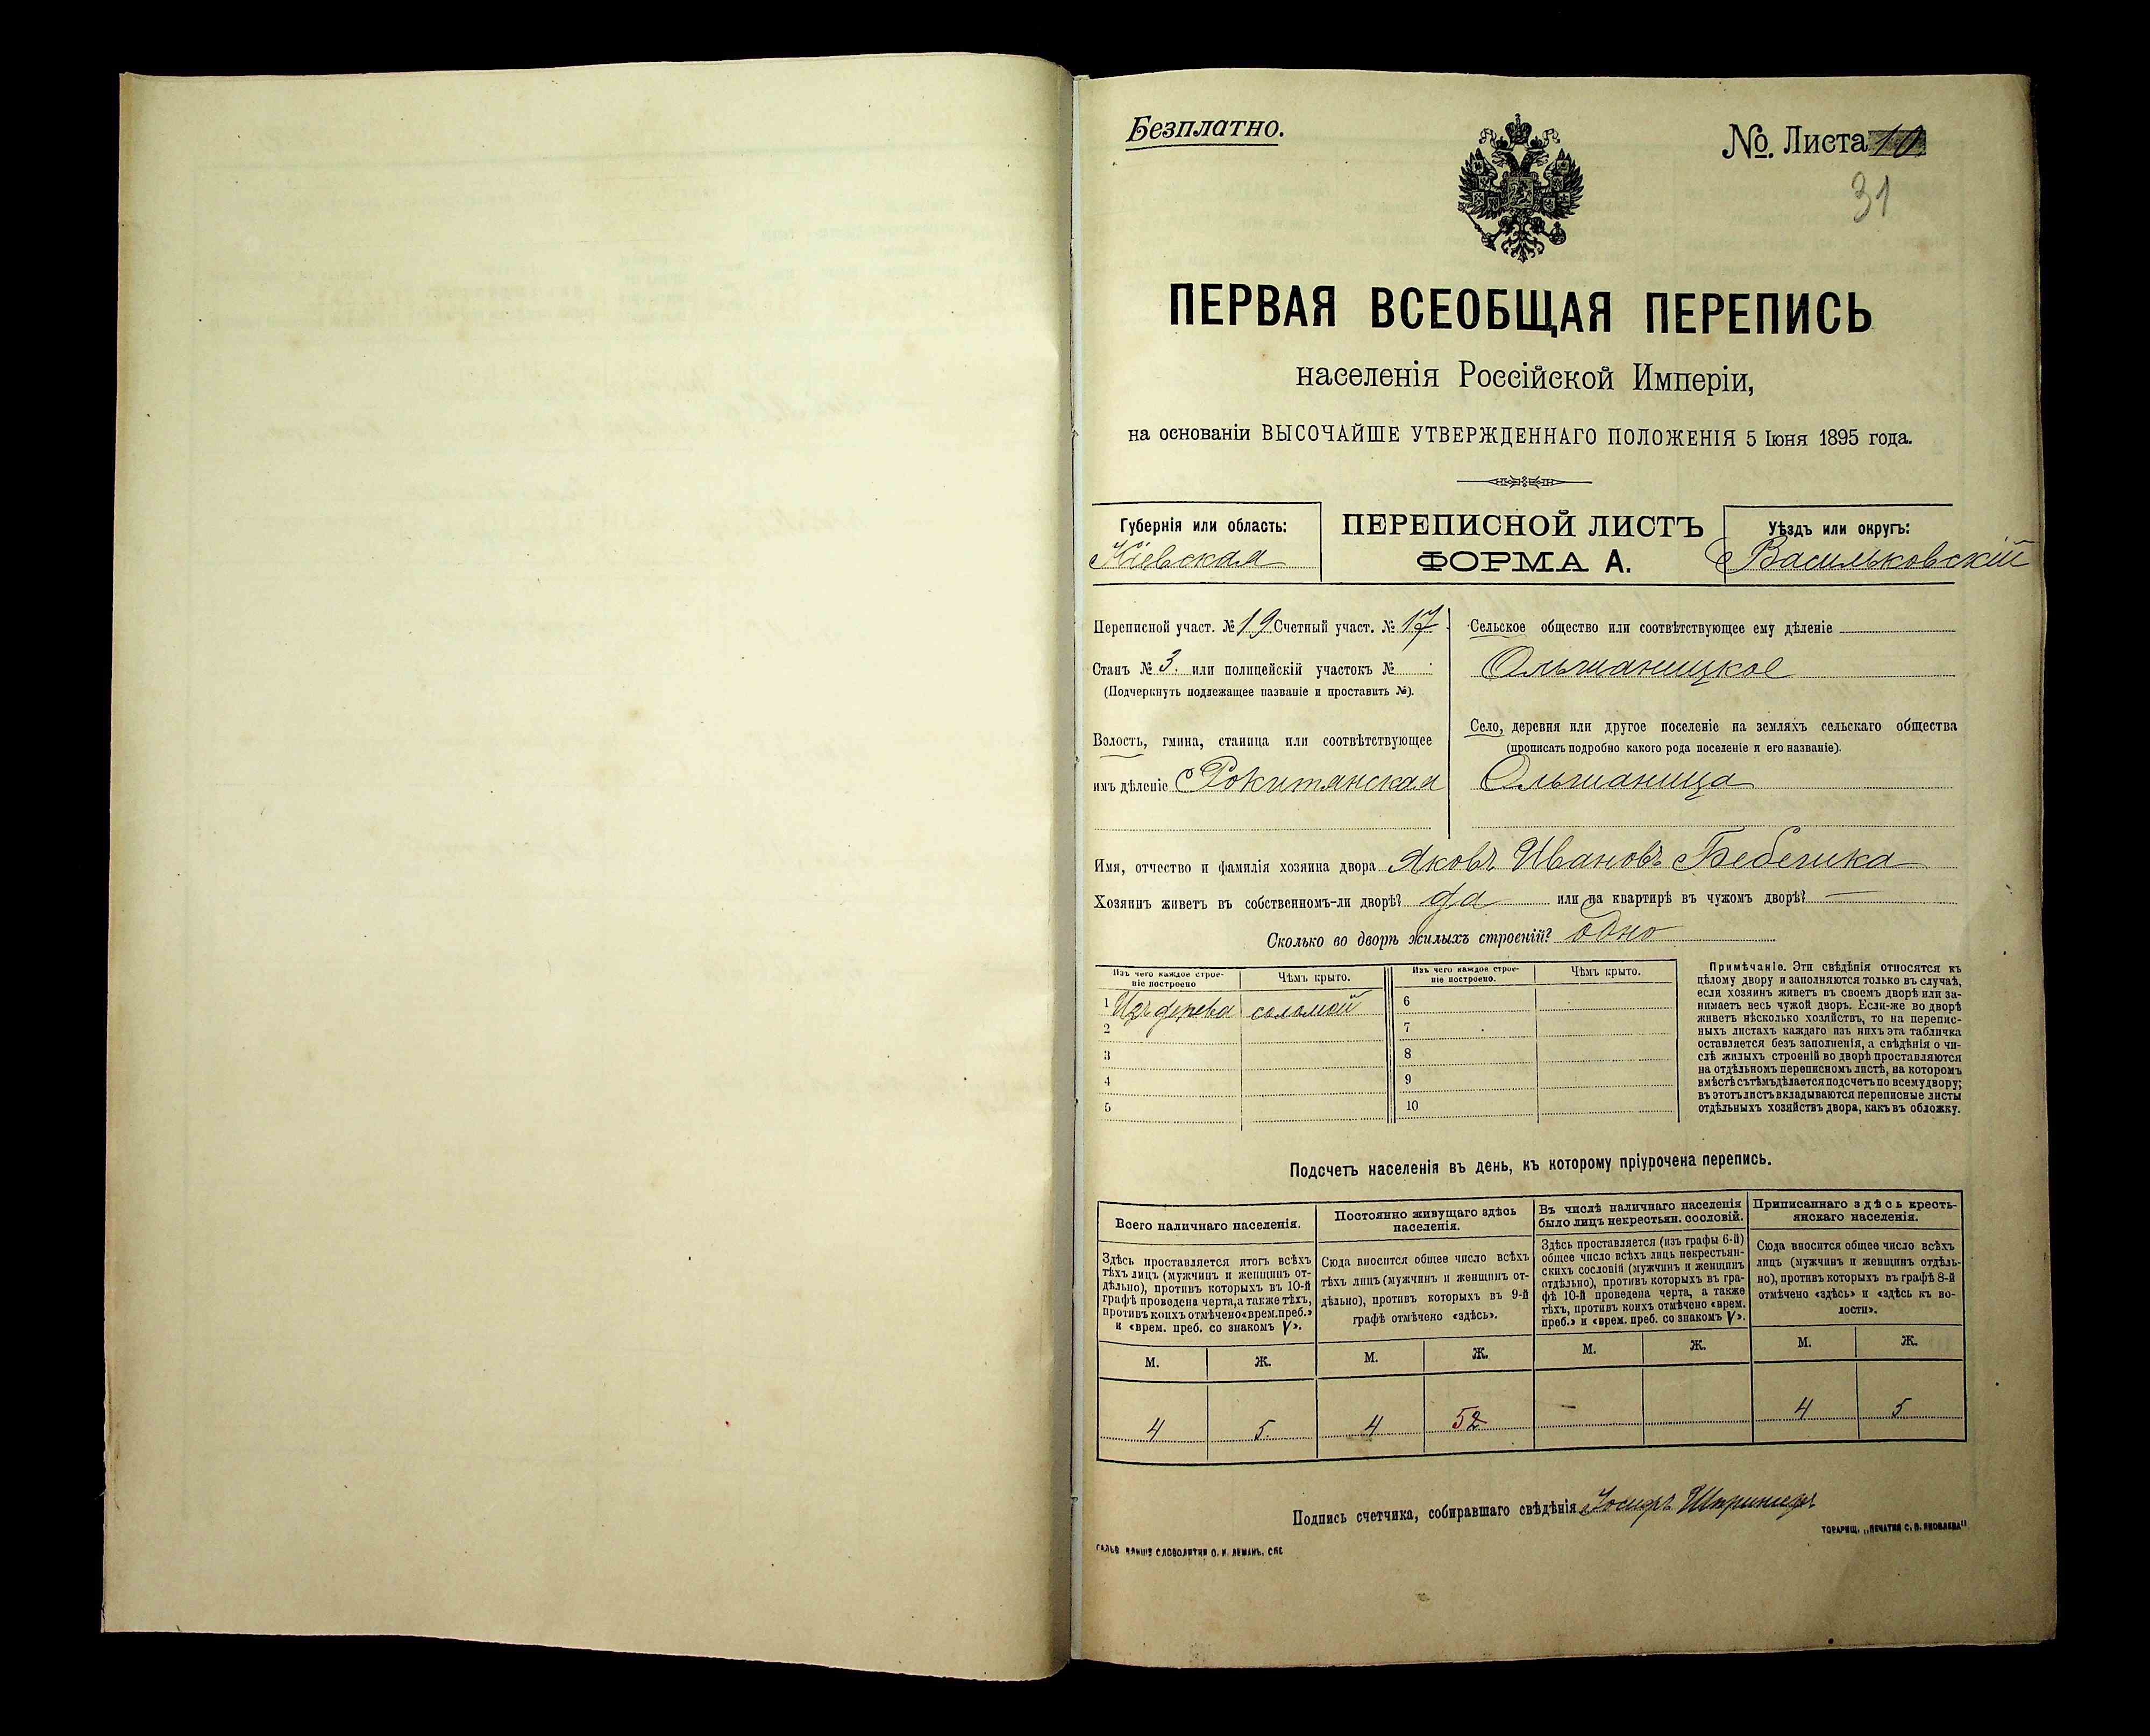 Безплатно.
№. Листа 10
31
ПЕРВАЯ ВСЕОБЩАЯ ПЕРЕПИСЬ
населенія Россійской Имперіи,
на основаніи ВЫСОЧАЙШЕ УТВЕРЖДЕННАГО ПОЛОЖЕНІЯ 5 Іюня 1895 года.
Губернія или область:
Кіевская
ПЕРЕПИСНОЙ ЛИСТЪ
ФОРМА А.
Уѣздъ или округъ:
Васильковскій
Переписной участ. № 19 Счетный участ. № 17
Станъ № 3. или полицейскій участокъ №
(Подчеркнуть подлежащее названіе и проставить №).
Волость, гмина, станица или соотвѣтствующее
имъ дѣленіе Рокитянская
Сельское общество или соотвѣтствующее ему дѣленіе
Ольшаницкое
Село, деревня или другое поселеніе на земляхъ сельскаго общества
(прописать подробно какого рода поселеніе и его названіе).
Ольшаница
Имя, отчество и фамилія хозяина двора Яковъ Ивановъ Бебешка
Хозяинъ живетъ въ собственномъ-ли дворѣ? да или на квартирѣ въ чужомъ дворѣ? —
Сколько во дворѣ жилыхъ строеній? одно
Изъ чего каждое строе-
ніе построено
Чѣмъ крыто.
Изъ чего каждое строе-
ніе построено.
Чѣмъ крыто.
1 Изъ дерева соломой 6
2 7
3 8
4 9
5 10
Примѣчаніе. Эти свѣдѣнія относятся къ
цѣлому двору и заполняются только въ случаѣ,
если хозяинъ живетъ въ своемъ дворѣ или за-
нимаетъ весь чужой дворъ. Если-же во дворѣ
живетъ нѣсколько хозяйствъ, то на перепис-
ныхъ листахъ каждаго изъ нихъ эта табличка
оставляется безъ заполненія, а свѣдѣнія о чи-
слѣ жилыхъ строеній во дворѣ проставляются
на отдѣльномъ переписномъ листѣ, на которомъ
вмѣстѣ съ тѣмъ дѣлается подсчетъ по всему двору;
въ этотъ листъ вкладываются переписные листы
отдѣльныхъ хозяйствъ двора, какъ въ обложку.
Подсчетъ населенія въ день, къ которому пріурочена перепись.
Всего наличнаго населенія.
Постоянно живущаго здѣсь
населенія.
Въ числѣ наличнаго населенія
было лицъ некрестьян. сословій.
Приписаннаго здѣсь кресть-
янскаго населенія.
Здѣсь проставляется итогъ всѣхъ
тѣхъ лицъ (мужчинъ и женщинъ от-
дѣльно), противъ которыхъ въ 10-й
графѣ проведена черта, а также тѣхъ,
противъ коихъ отмѣчено «врем. преб.»
и «врем. преб. со знакомъ V».
Сюда вносится общее число всѣхъ
тѣхъ лицъ (мужчинъ и женщинъ от-
дѣльно), противъ которыхъ въ 9-й
графѣ отмѣчено «здѣсь».
Здѣсь проставляется (изъ графы 6-й)
общее число всѣхъ лицъ некрестьян-
скихъ сословій (мужчинъ и женщинъ
отдѣльно), противъ которыхъ въ гра-
фѣ 10-й проведена черта, а также
тѣхъ, противъ коихъ отмѣчено «врем.
преб.» и «врем. преб. со знакомъ V».
Сюда вносится общее число всѣхъ
лицъ (мужчинъ и женщинъ отдѣль-
но), противъ которыхъ въ графѣ 8-й
отмѣчено «здѣсь» и «здѣсь къ во-
лости».
М. Ж. М. Ж. М. Ж. М. Ж.
4 5. 4 52 — 4 5
Подпись счетчика, собиравшаго свѣдѣнія Іосифъ
ТОВАРИЩ. „ПЕЧАТНЯ С. П. ЯКОВЛЕВА"
СЛОВОЛИТНЯ О. И. ЛЕМАНЪ, СПБ